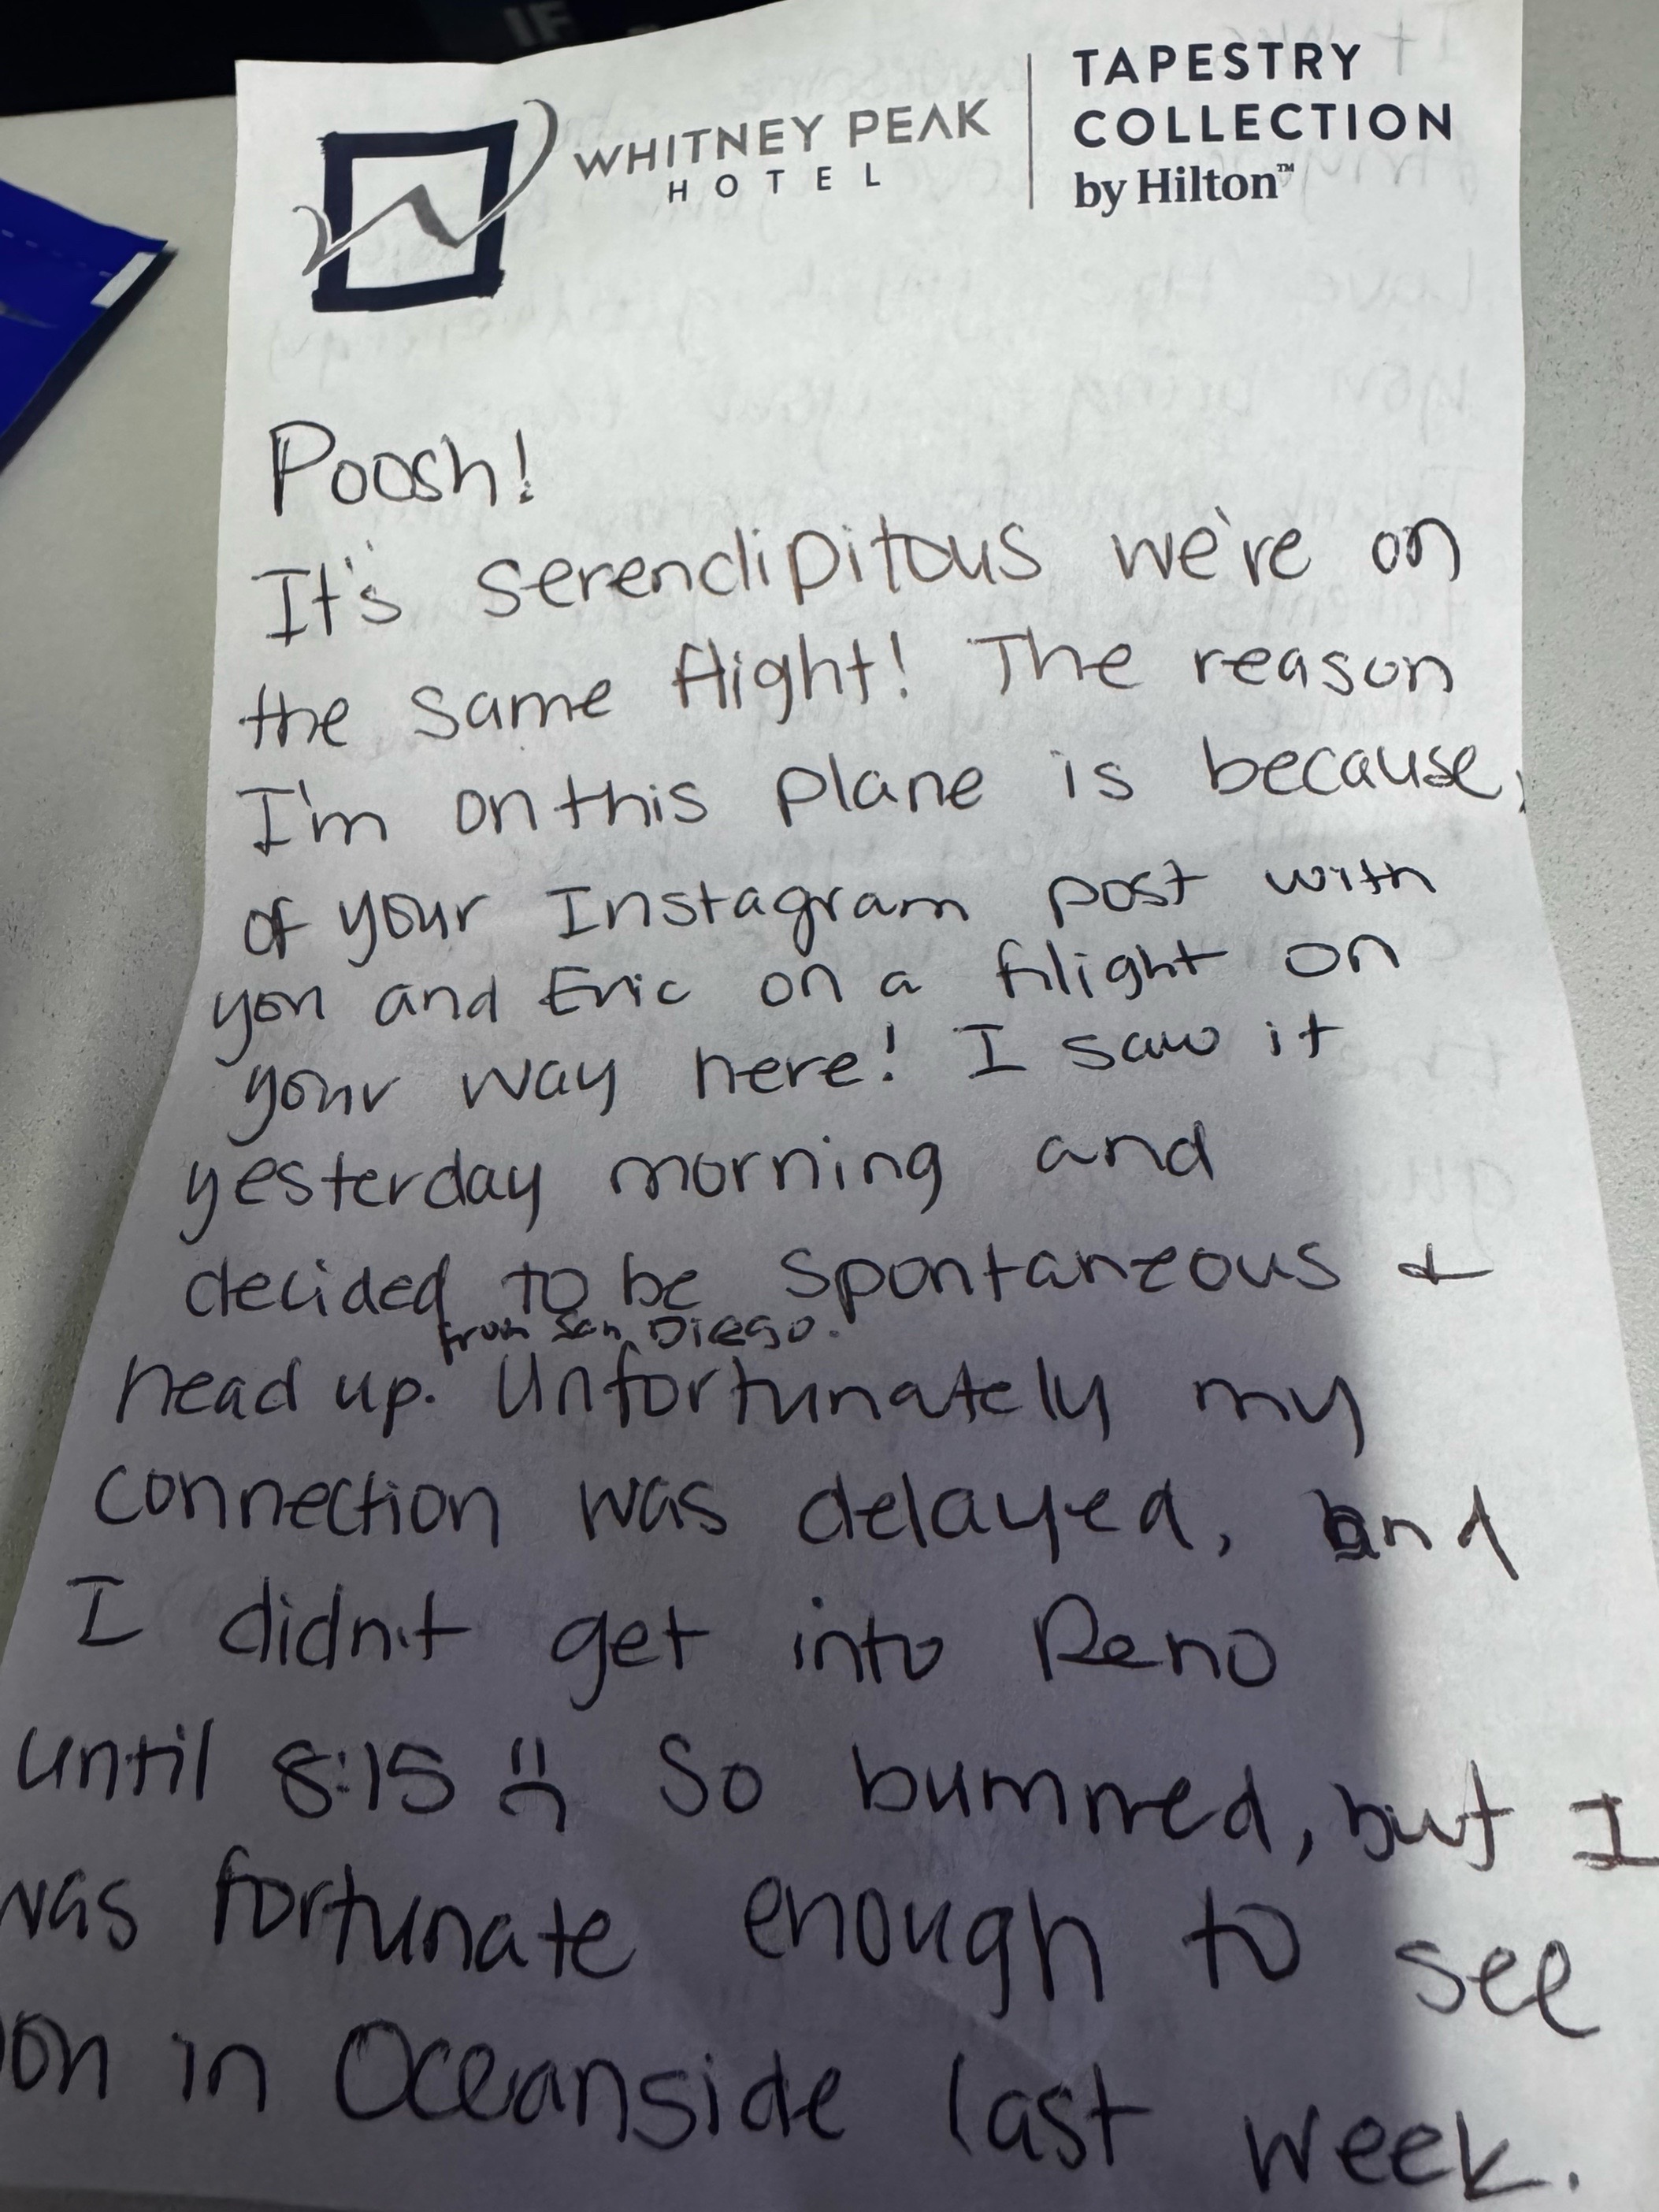 IF
WHITNEY PEAK
HOTEL
TAPESTRY
COLLECTION
by Hilton™
Poosh!
It's serendipitous we're on
the same flight! The reason
I'm on this plane is because,
of your Instagram post with
you and Eric on a flight on
your way here! I saw it
yesterday morning and
decided to be spontaneous &
from San Diego.
head up. Unfortunately my
connection was delayed, and
I didn't get into Reno
until 8:15 :( So bummed, but I
was fortunate enough to see
in Oceanside last week.